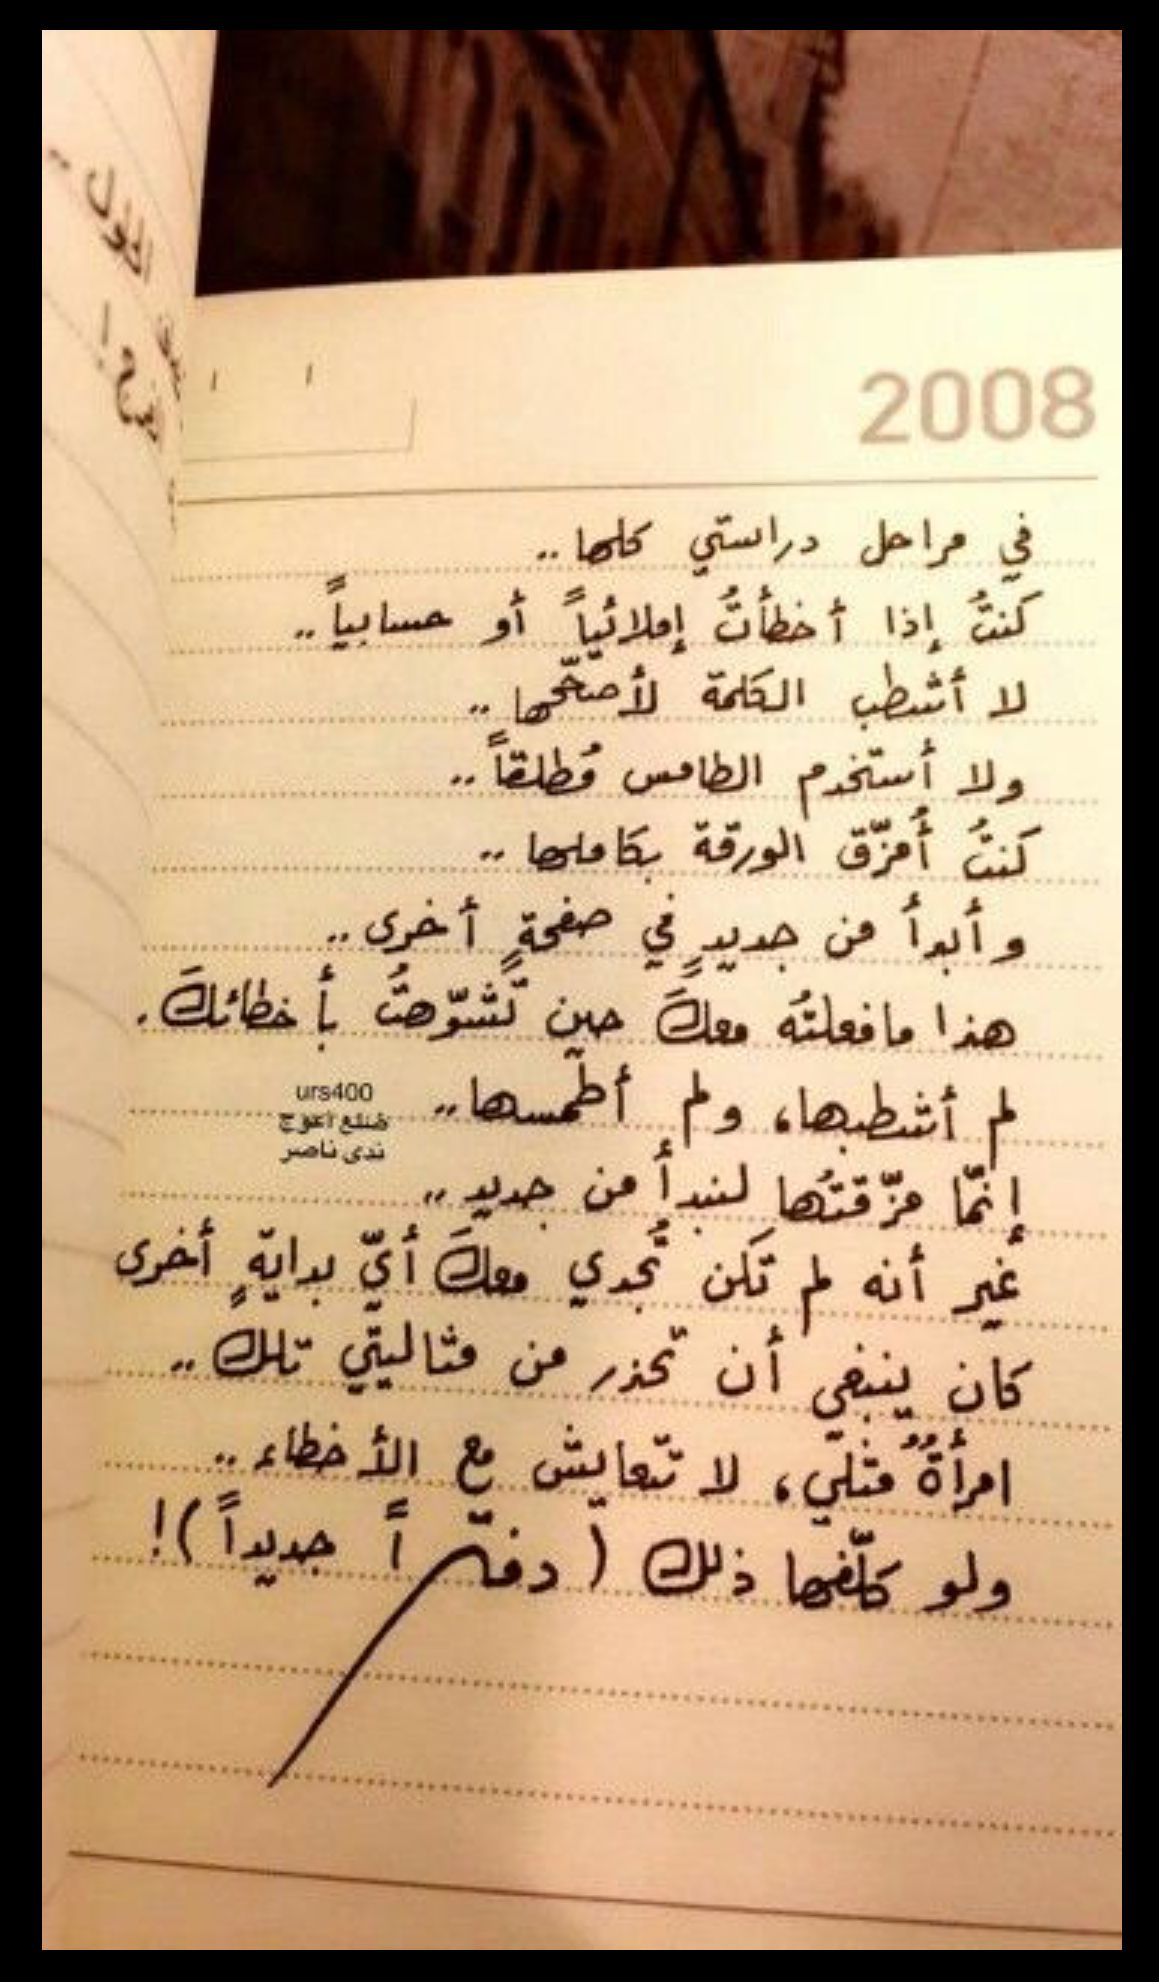 2008
في مراحل دراستي كلها ..
كنتُ إذا أخطأتُ إملائيّاً أو حسابياً ..
لا أشطب الكلمة لأصحّحها ..
ولا أستخدم الطامس مُطلقاً ..
كنتُ أُمزّق الورقة بكاملها ..
وأبدأ من جديدٍ في صفحةٍ أخرى ..
هذا مافعلتُه معكَ حين تَشوّهتُ بأخطائكَ .
لم أشطبها، ولم أطمسها ..
urs400
ضلع اعوج
ندى ناصر
إنّما مزّقتُها لنبدأ من جديدٍ ..
غير أنه لم تَكن تُجدي معكَ أيّ بدايةٍ أخرى
كان ينبغي أن تحذر من مثاليتي تلك ..
امرأةٌ مثلي، لا تتعايش مع الأخطاء ..
ولو كلّفها ذلك ( دفتراً جديداً )!